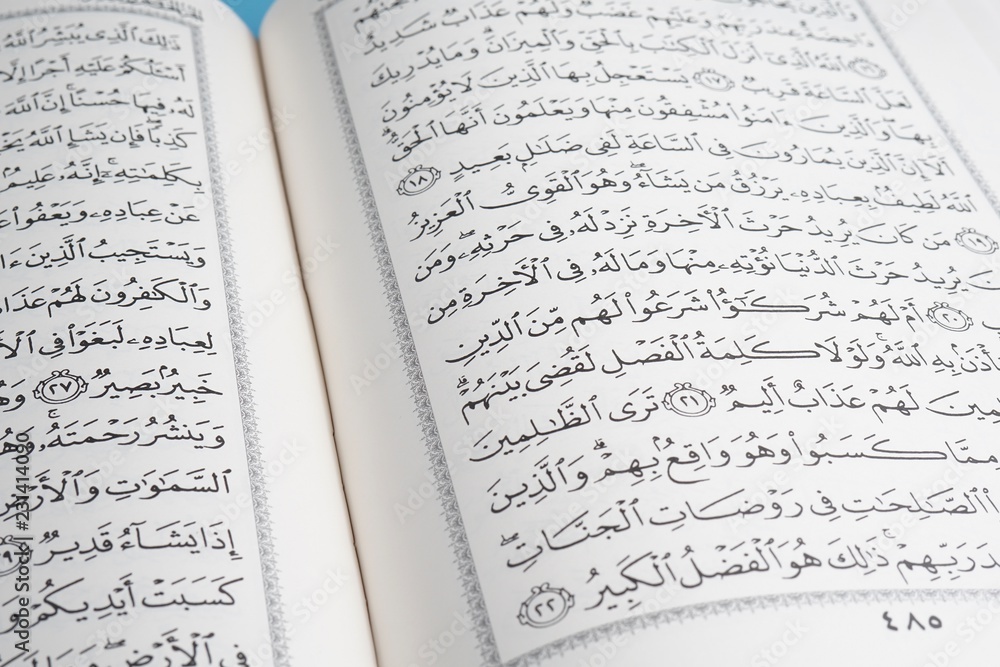 وَٱلَّذِينَ
دَاحِضَةٌ عِندَ رَبِّهِمْ وَعَلَيْهِمْ غَضَبٌ وَلَهُمْ عَذَابٌ شَدِيدٌ
ٱللَّهُ ٱلَّذِىٓ أَنزَلَ ٱلْكِتَٰبَ بِٱلْحَقِّ وَٱلْمِيزَانَ وَمَا يُدْرِيكَ
لَعَلَّ ٱلسَّاعَةَ قَرِيبٌ ١٧ يَسْتَعْجِلُ بِهَا ٱلَّذِينَ لَا يُؤْمِنُونَ
بِهَا وَٱلَّذِينَ ءَامَنُوا۟ مُشْفِقُونَ مِنْهَا وَيَعْلَمُونَ أَنَّهَا ٱلْحَقُّ
أَلَآ إِنَّ ٱلَّذِينَ يُمَارُونَ فِى ٱلسَّاعَةِ لَفِى ضَلَٰلٍۭ بَعِيدٍ ١٨
ٱللَّهُ لَطِيفٌۢ بِعِبَادِهِۦ يَرْزُقُ مَن يَشَآءُ وَهُوَ ٱلْقَوِىُّ ٱلْعَزِيزُ
١٩ مَن كَانَ يُرِيدُ حَرْثَ ٱلْءَاخِرَةِ نَزِدْ لَهُۥ فِى حَرْثِهِۦ وَمَن
يُرِيدُ حَرْثَ ٱلدُّنْيَا نُؤْتِهِۦ مِنْهَا وَمَا لَهُۥ فِى ٱلْءَاخِرَةِ مِن
٢٠ أَمْ لَهُمْ شُرَكَٰٓؤُا۟ شَرَعُوا۟ لَهُم مِّنَ ٱلدِّينِ
بِهِ ٱللَّهُ وَلَوْلَا كَلِمَةُ ٱلْفَصْلِ لَقُضِىَ بَيْنَهُمْ
لَهُمْ عَذَابٌ أَلِيمٌ ٢١ تَرَى ٱلظَّٰلِمِينَ
مِمَّا كَسَبُوا۟ وَهُوَ وَاقِعٌۢ بِهِمْ وَٱلَّذِينَ
ٱلصَّٰلِحَٰتِ فِى رَوْضَاتِ ٱلْجَنَّاتِ
رَبِّهِمْ ذَٰلِكَ هُوَ ٱلْفَضْلُ ٱلْكَبِيرُ ٢٢
٤٨٥
ذَٰلِكَ ٱلَّذِى يُبَشِّرُ ٱللَّهُ
أَسْـَٔلُكُمْ عَلَيْهِ أَجْرًا إِلَّا
لَهُۥ فِيهَا حُسْنًا إِنَّ ٱللَّهَ
كَذِبًا فَإِن يَشَإِ ٱللَّهُ
بِكَلِمَٰتِهِۦٓ إِنَّهُۥ عَلِيمٌۢ
عَنْ عِبَادِهِۦ وَيَعْفُوا۟
وَيَسْتَجِيبُ ٱلَّذِينَ
وَٱلْكَٰفِرُونَ لَهُمْ
لِعِبَادِهِۦ لَبَغَوْا۟ فِى
خَبِيرٌۢ بَصِيرٌ ٢٧
وَيَنشُرُ رَحْمَتَهُۥ
ٱلسَّمَٰوَٰتِ وَٱلْأَرْضِ
إِذَا يَشَآءُ قَدِيرٌ
كَسَبَتْ أَيْدِيكُمْ
فِى ٱلْأَرْضِ
Adobe Stock | #231414080